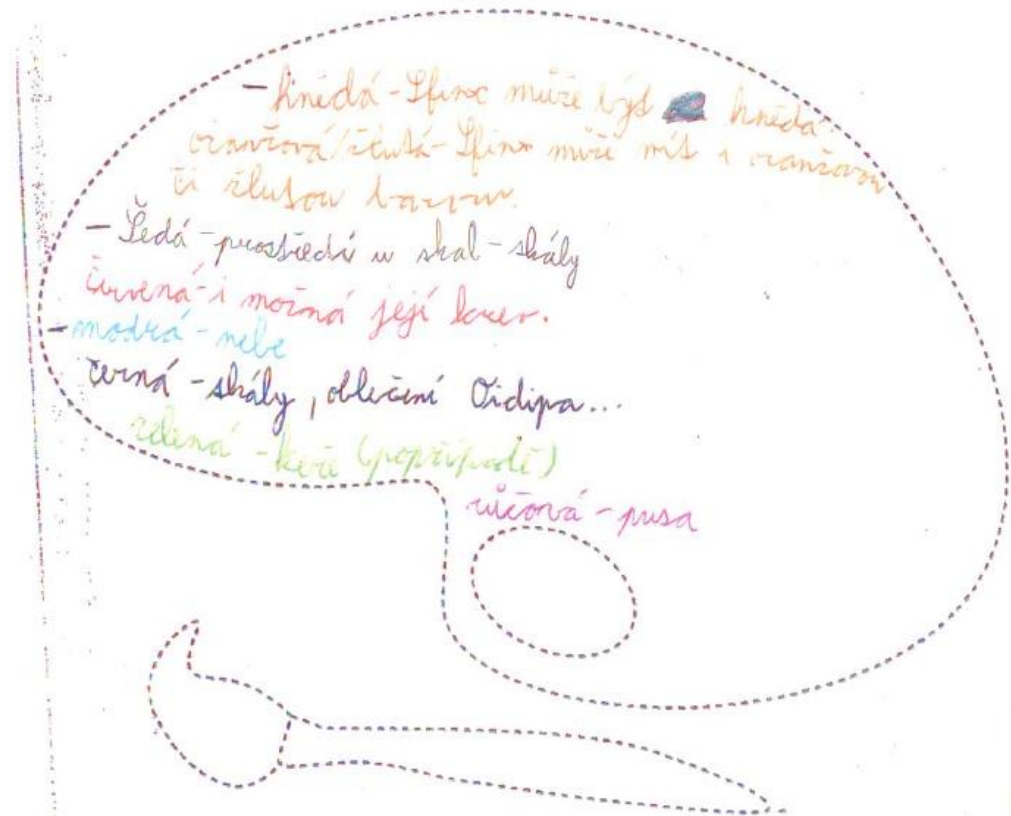 - hnědá - Sfinx může být hnědá.
oranžová/žlutá - Sfinx může mít i oranžovou
či žlutou barvu.
- Šedá - prostředí u skal - skály
červená - i možná její krev.
- modrá - nebe
černá - skály, oblečení Oidipa...
zelená - keře (popřípadě)
růžová - pusa